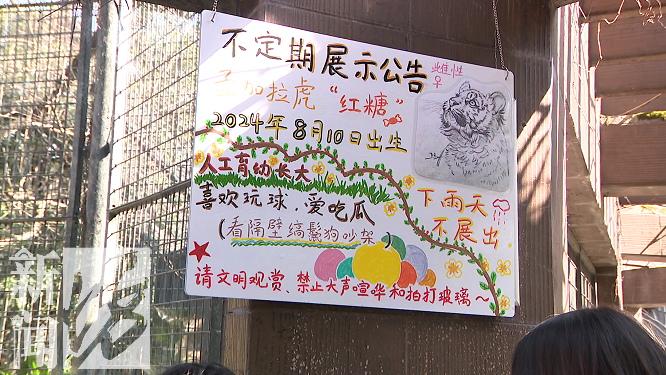 不定期展示公告
雌性
♀
孟加拉虎“红糖”
2024年8月10日出生
人工育幼长大
喜欢玩球,爱吃瓜
(看隔壁缟鬣狗吵架
下雨天
不展出
请文明观赏、禁止大声喧哗和拍打玻璃~
新闻